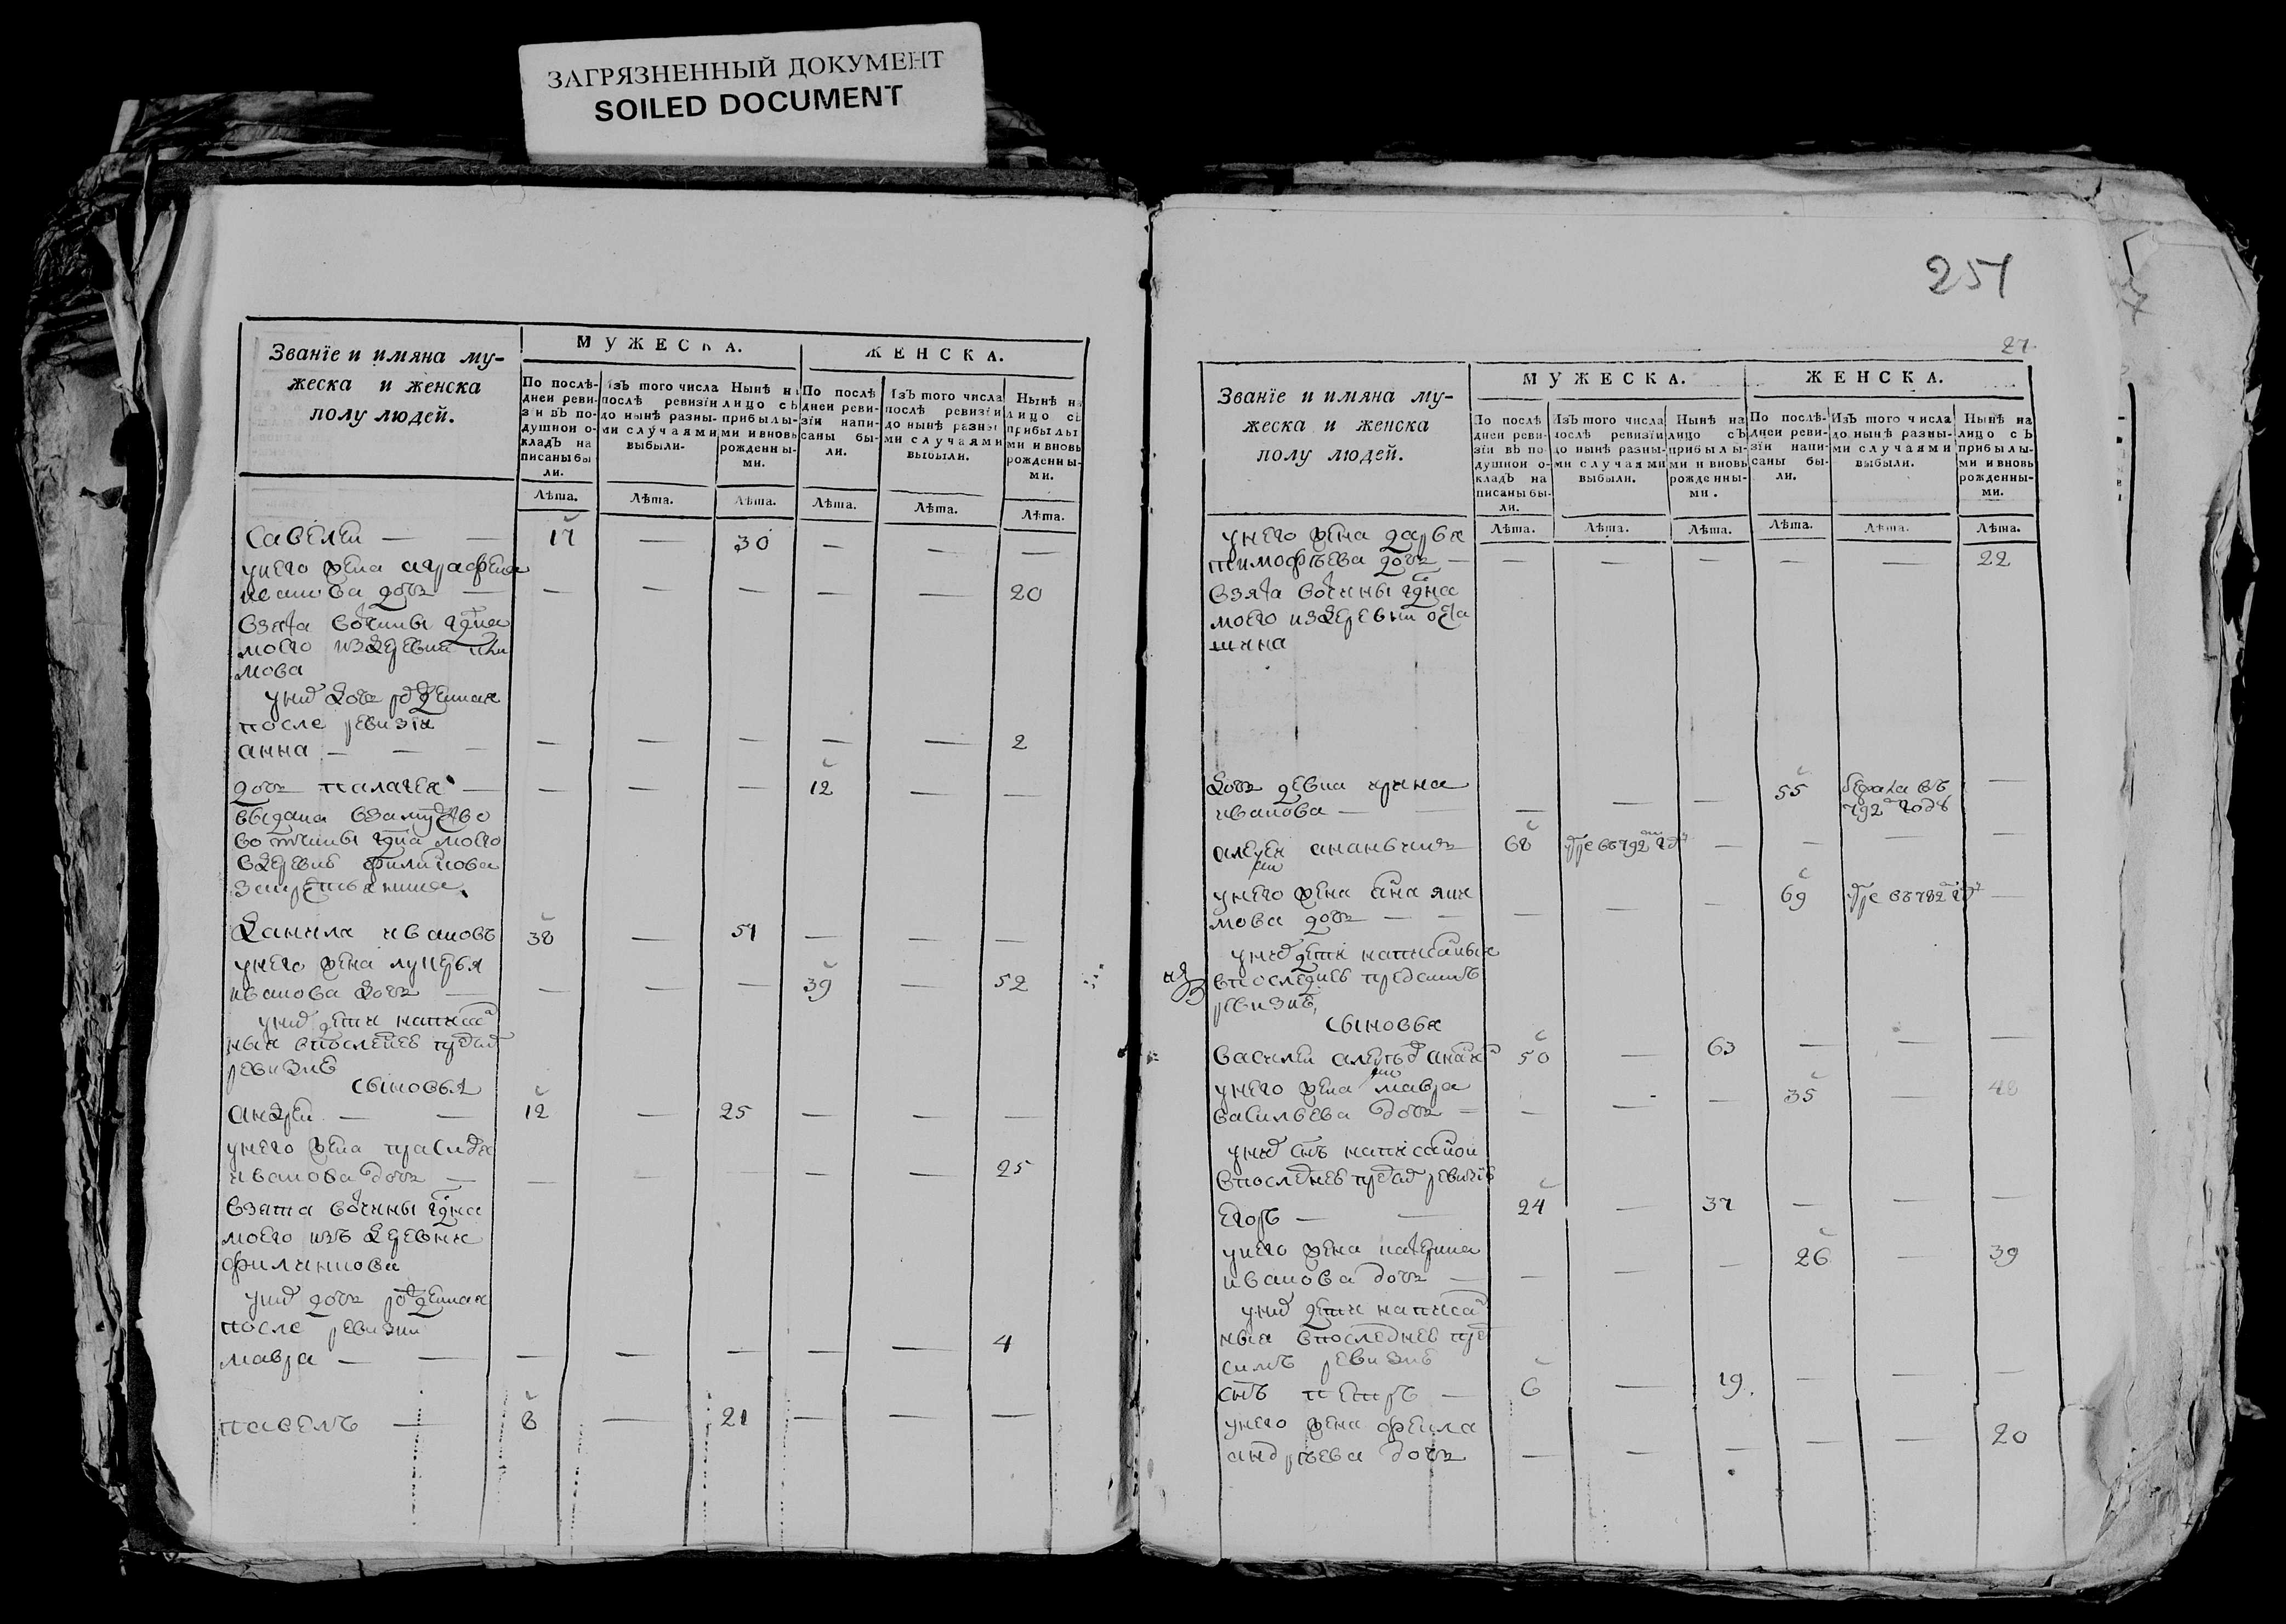 ЗАГРЯЗНЕННЫЙ ДОКУМЕНТ
SOILED DOCUMENT
Званїе и имяна му-
жеска и женска
полу людей.
МУЖЕСКА.
ЖЕНСКА.
По послѣ-
дней реви-
зїи въ по-
душной о-
кладъ на
писаны бы
ли.
Изъ того числа
послѣ ревизїи
до нынѣ разны-
ми случаями
выбыли.
Нынѣ на
лицо съ
прибылы-
ми и вновь
рожденны-
ми.
По послѣ
дней реви-
зїи напи-
саны бы-
ли.
Изъ того числа
послѣ ревизїи
до нынѣ разны
ми случаями
выбыли.
Нынѣ на
лицо съ
прибылы
ми и вновь
рожденны-
ми.
Лѣта. Лѣта. Лѣта. Лѣта. Лѣта. Лѣта.
Савелей — — 17 — 30 — — —
унего жена аграфена
иванова дочь — — — — — — 20
взята вотчины гдна
моего издеревни
мова
унихъ дочь рожденная
после ревизїи
анна — — — — — — — — 2
дочь палагея — — — — 12 — —
выдана взамужство
вотчины гдна моего
вдеревне филипова
закрестьянина
Данила ивановъ 38 — 51 — — —
унего жена лукерья
иванова дочь — — — — 39 — 52
унихъ дети написан
ныя впоследней предъ сей
ревизие
сыновья
андрей — — 12 — 25 — — —
унего жена прасковя
иванова дочь — — — — — — 25
взята вотчины гдна
моего изъ деревни
филиппова
унихъ дочь рожденная
после ревизии
мавра — — — — — — — 4
павелъ — 8 — 21 — — —
251
27
Званїе и имяна му-
жеска и женска
полу людей.
МУЖЕСКА.
ЖЕНСКА.
По послѣ
дней реви-
зїи въ по
душной о-
кладъ на
писаны бы-
ли.
Изъ того числа
послѣ ревизїи
до нынѣ разны-
ми случаями
выбыли.
Нынѣ на
лицо съ
прибылы-
ми и вновь
рожденны-
ми.
По послѣ-
дней реви-
зїи напи-
саны бы-
ли.
Изъ того числа
до нынѣ разны-
ми случаями
выбыли.
Нынѣ на
лицо съ
прибылы-
ми и вновь
рожденны-
ми.
Лѣта. Лѣта. Лѣта. Лѣта. Лѣта. Лѣта.
унего жена дарья
тимофѣева дочь — — — — — — 22
взята вотчины гдна
моего издеревни
шина
дочь девка ирина 55 —
иванова — — — — 792 годѣ
алексей ананьинъ 68 792 — — — —
унего жена анна яки
мова дочь — — — — — 69 782 —
унихъ дети написанныя
впоследней предъ симъ
ревизие
сыновья
василей алексѣевъ 50 — 63 — — —
унего жена мавра
васильева дочь — — — — 35 — 48
унихъ снъ написанной
впоследней предъ сей ревизїе
Егоръ — — 24 — 37 — — —
унего жена катерина
иванова дочь — — — — 26 — 39
унихъ дети написан
ныя впоследней пред
симъ ревизие
снъ петръ — 6 — 19. — — —
унего жена фекла
андрѣева дочь — — — — — 20